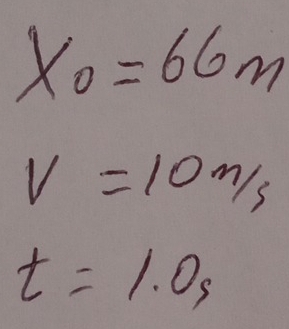 X₀ = 66m
V = 10m/s
t = 1.0s